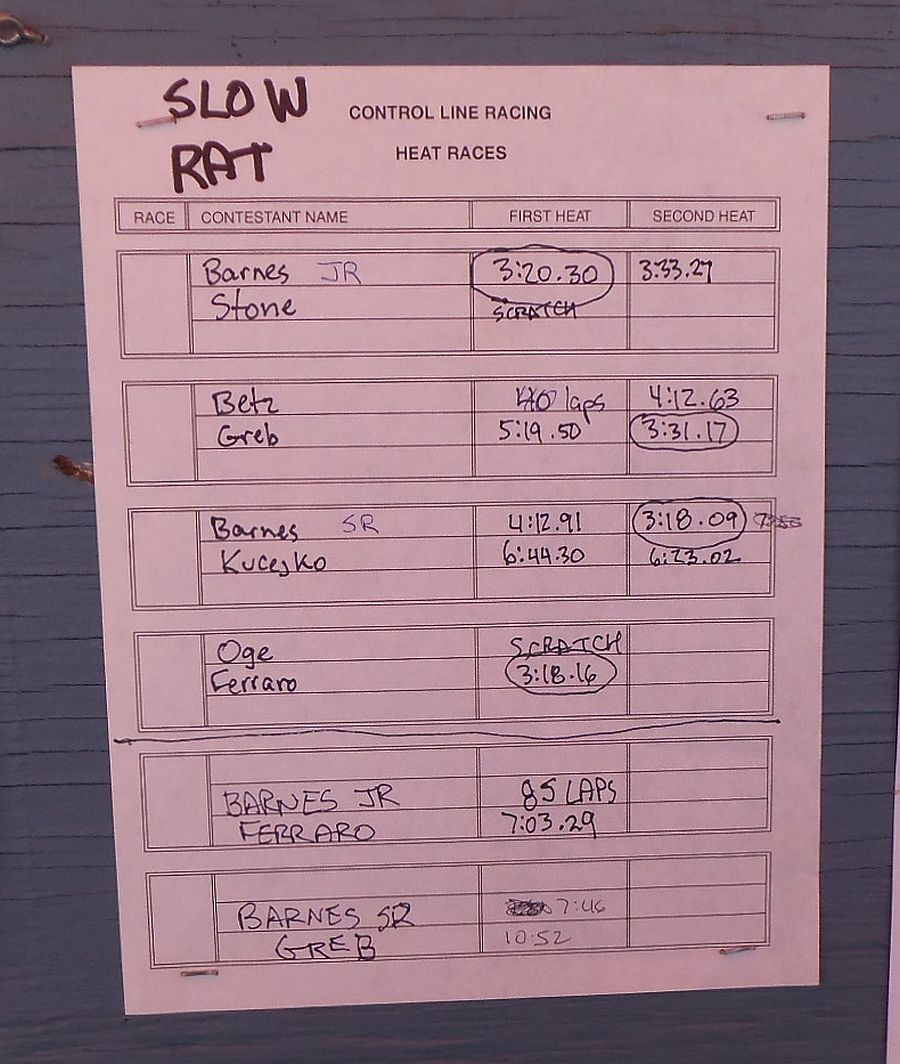 SLOW
RAT
CONTROL LINE RACING
HEAT RACES
RACE CONTESTANT NAME FIRST HEAT SECOND HEAT
Barnes JR 3:20.30 3:33.27
Stone SCRATCH
Betz 40 laps 4:12.63
Greb 5:19.50 3:31.17
Barnes SR 4:12.91 3:18.09
Kucejko 6:44.30 6:23.02
Oge SCRATCH
Ferraro 3:18.16
BARNES JR 85 LAPS
FERRARO 7:03.29
BARNES SR 7:46
GREB 10:52